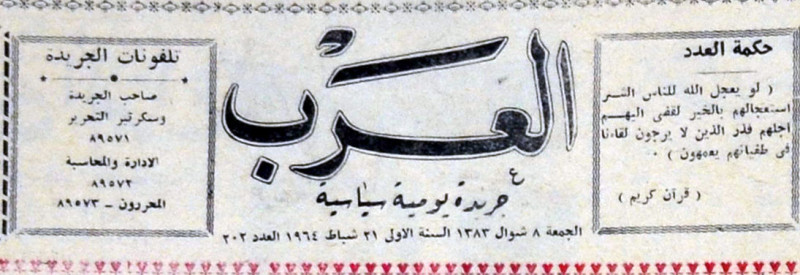 حكمة العدد
( لو يعجل الله للناس الشر
استعجالهم بالخير لقضى اليهم
اجلهم فذر الذين لا يرجون لقاءنا
في طغيانهم يعمهون ) .
( قرآن كريم )
العرب
جريدة يومية سياسية
الجمعة ٨ شوال ١٣٨٣ السنة الاولى ٢١ شباط ١٩٦٤ العدد ٢٠٢
تلفونات الجريدة
صاحب الجريدة
وسكرتير التحرير
٨٩٥٧١
الادارة والمحاسبة
٨٩٥٧٢
المحررون - ٨٩٥٧٣